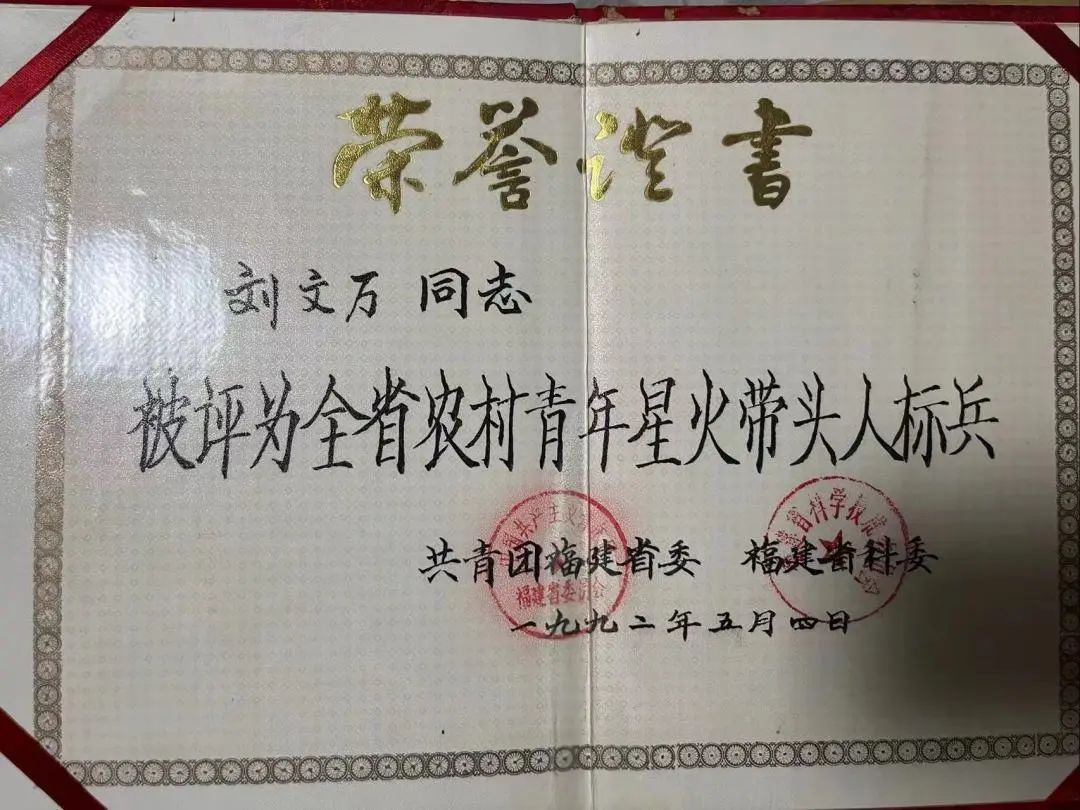 荣誉證書
刘文万 同志
被评为全省农村青年星火带头人标兵
共青团福建省委 福建省科委
福建省委员会
一九九二年五月四日